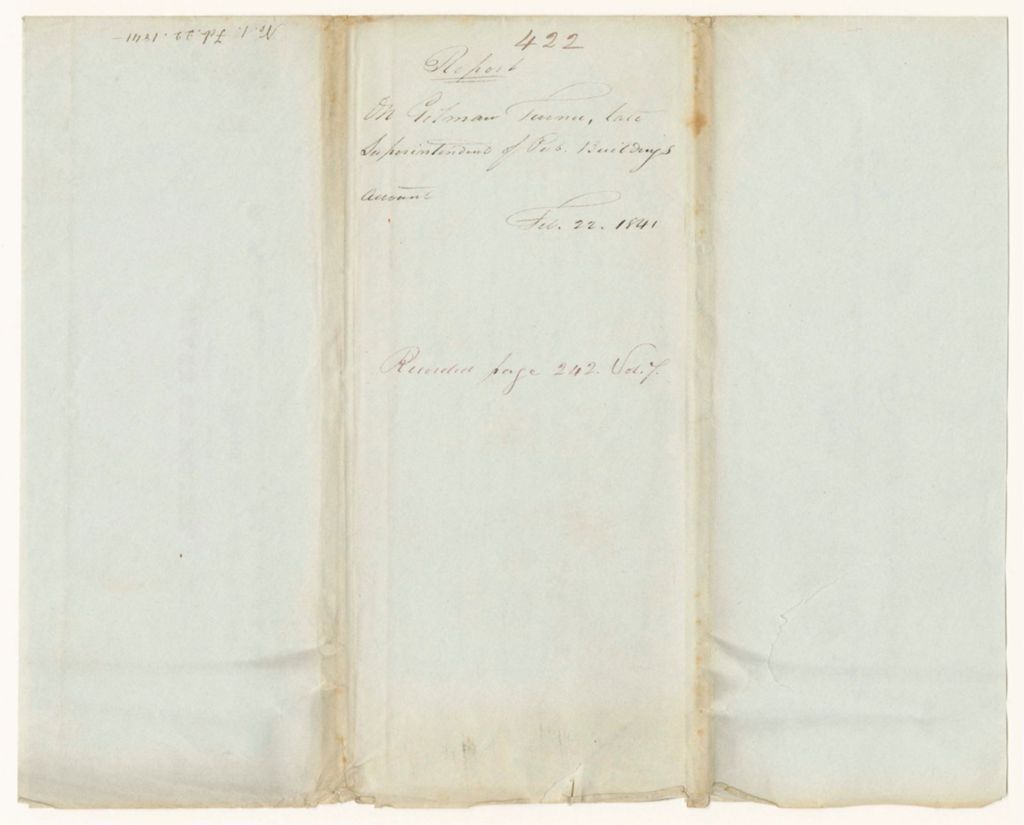 422
Report
On Gilman Turner, late
Superintendent of Pub. Buildings
account
Feb. 22. 1841
Recorded page 242. Vol. 7.
No. 1. Feb. 22. 1841-